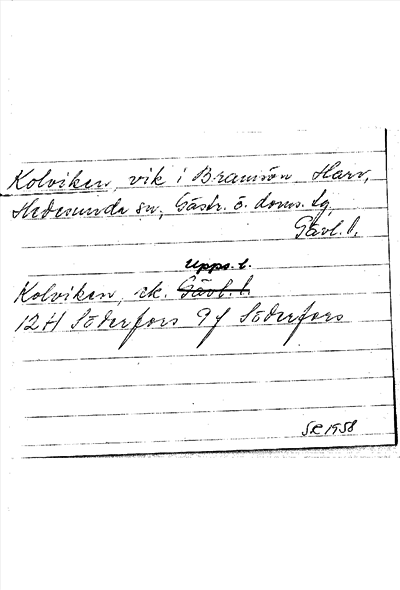 Kolviken, vik i Bramsön Harv,
Hedesunda sn, Gästr. ö. doms. tg,
Gävl. l.
Upps. l.
Kolviken, rk. Gävl. l.
12 H Söderfors 9f Söderfors
SR 1958